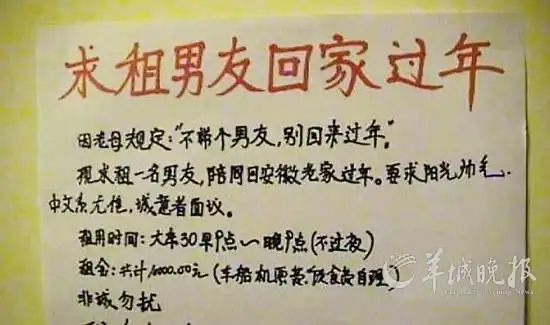 求租男友回家过年
因老母规定:"不带个男友,别回来过年"。
现求租一名男友,陪同回安徽老家过年。要求阳光帅气、
中文系尤佳,诚意者面议。
租用时间:大年30早9点~晚9点(不过夜)
租金:共计1000.00元(车船机票费、饮食费自理)
非诚勿扰
羊城晚报